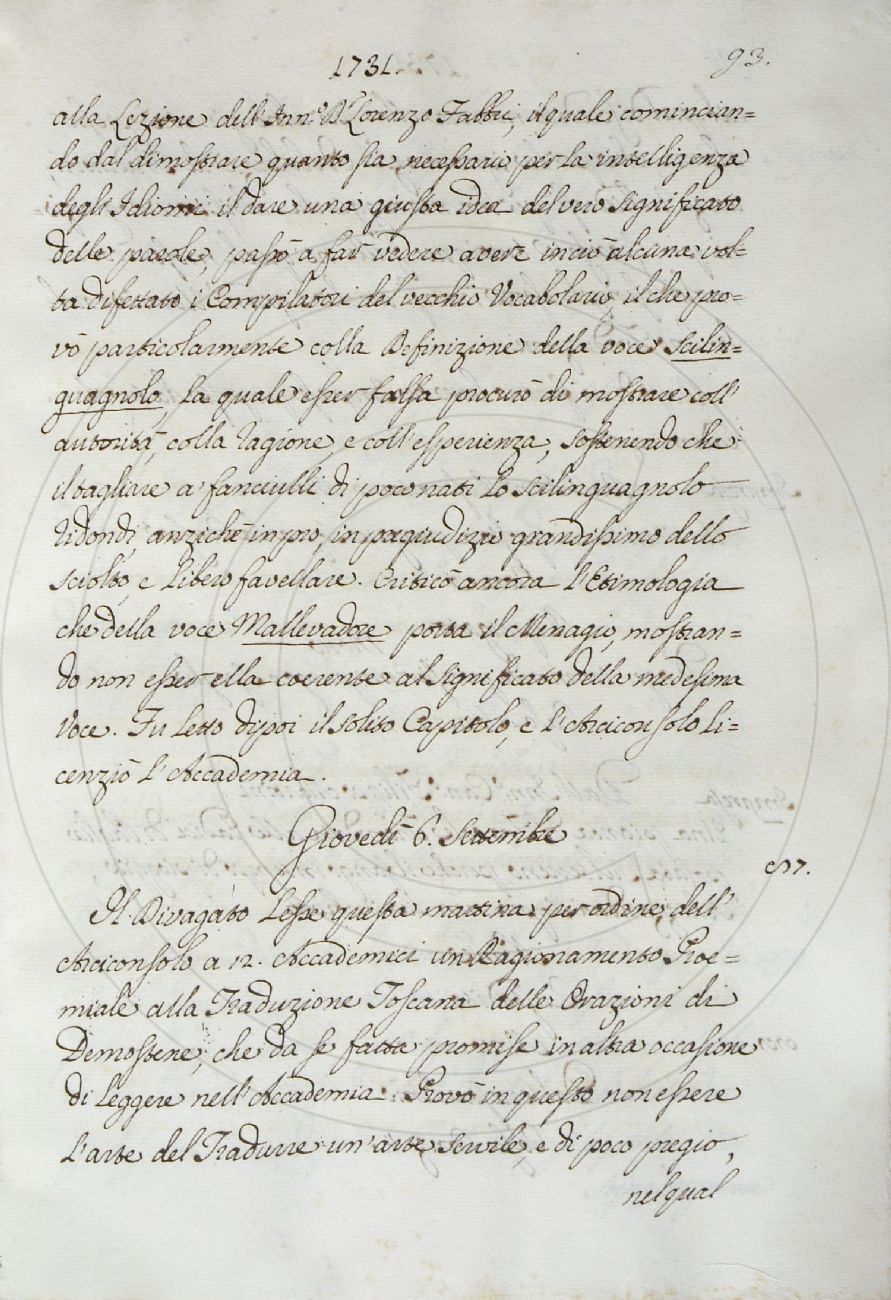 1731.
93.
alla Lezione dell'Inn.° D.r Lorenzo Fabbri, il quale comincian=
do dal dimostrare quanto sia necessario per la intelligenza
degli Idiomi il dare una giusta idea del vero significato
delle parole, passò a far vedere avere in ciò alcuna vol=
ta difettato i Compilatori del vecchio Vocabolario, il che pro=
vò particolarmente colla Definizione della voce Scilin=
guagnolo, la quale esser falsa procurò di mostrare coll'
autorità, colla ragione, e coll'esperienza, sostenendo che
il tagliare a' fanciulli di poco nati lo scilinguagnolo
ridondi, anzichè in pro, in pregiudizio grandissimo dello
sciolto, e libero favellare. Criticò ancora l'Etimologia
che della voce Mallevadore porta il Menagio, mostran=
do non esser ella coerente al significato della medesima
voce. Fu letto dipoi il solito Capitolo, e l'Arciconsolo li=
cenziò l'Accademia.
Giovedì 6. Settembre
97.
Il Divagato lesse questa mattina per ordine dell'
Arciconsolo a 12. Accademici un Ragionamento Proe=
miale alla Traduzione Toscana delle Orazioni di
Demostene, che da se fatta promise in altra occasione
di leggere nell'Accademia. Provò in questo non essere
l'arte del Tradurre un'arte servile, e di poco pregio,
nel qual